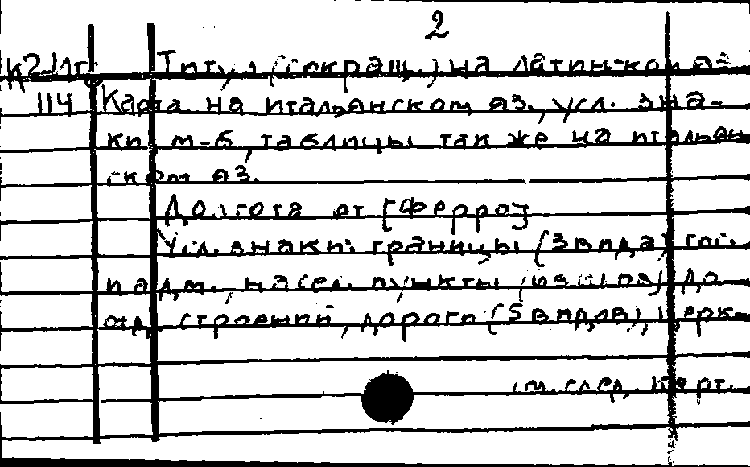 2
К2-Иг Титул (сокращ.) на латинском яз.
114 Карта на итальянском яз., усл. зна-
ки, м-б, таблицы так же на итальян
ском яз.
Долгота от [Ферро]
Усл. знаки: границы (3 вида) гос.
и адм., насел. пункты ( до
отд. строений, дороги (5 видов), церк-
см. след. карт.